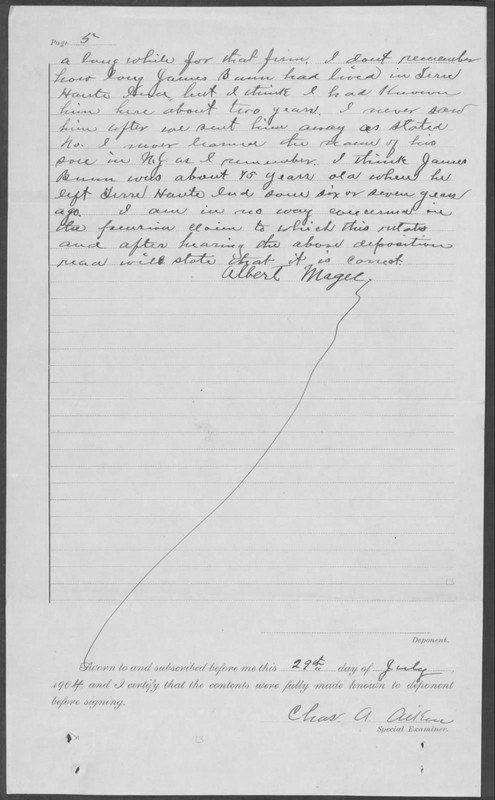 Page 5
a long while for that firm. I dont remember
how long James Bunn had lived in Terre
Haute Ind, but I think I had Known
him here about two years. I never saw
him after we sent him away as stated
No. I never learned the name of his
son in N.C. as I remember. I think James
Bunn was about 45 years old when he
left Terre Haute Ind some six or seven years
ago. I am in no way concerned in
the pension claim to which this relates
and after hearing the above deposition
read will state that it is correct.
Albert Magee
Deponent.
Sworn to and subscribed before me this 29th day of July
1904, and I certify that the contents were fully made known to deponent
before signing.
Chas. A. Aiken
Special Examiner.